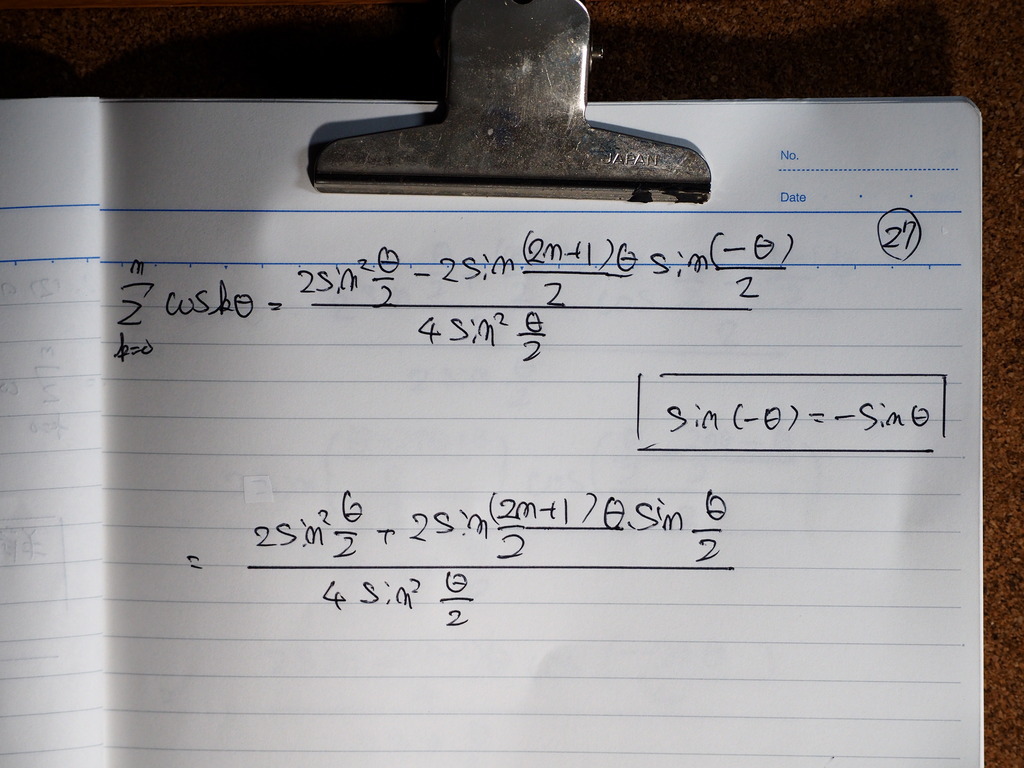 JAPAN
No.
Date
27
n
∑ cos kθ = (2sin² θ/2 − 2sin (2n+1)θ/2 sin (−θ)/2) / (4 sin² θ/2)
k=0
sin (−θ) = −sin θ
= (2sin² θ/2 + 2sin (2n+1)θ/2 · sin θ/2) / (4 sin² θ/2)